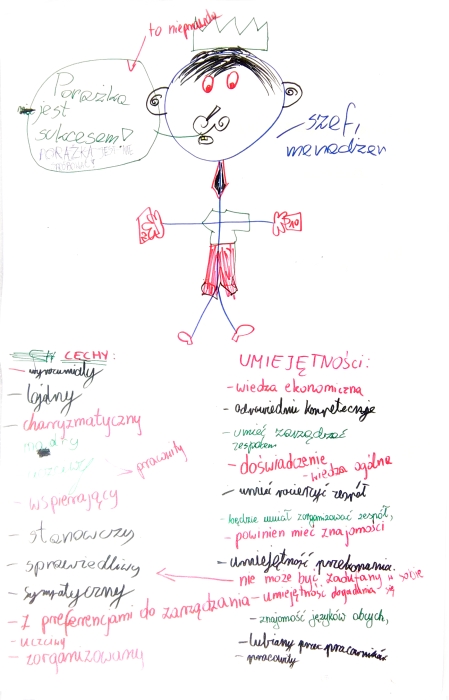 to nieprawda
Porażka
jest
sukcesem!
PORAŻKA JEST NIE
szef,
menadżer
CECHY:
- wyrozumiały
- lojalny
- charyzmatyczny
mądry
→ pracowity
- wspierający
- stanowczy
- sprawiedliwy
- sympatyczny
- z preferencjami do zarządzania
- uczciwy
- zorganizowany
UMIEJĘTNOŚCI:
- wiedza ekonomiczna
- odpowiednie kompetencje
- umieć zarządzać
zespołem
- doświadczenie
- wiedza ogólna
- umieć ocierzyć zespół
- będzie umiał zorganizować zespół,
- powinien mieć znajomości
- umiejętność przekonania.
nie może być zadufany w sobie
- umiejętność dogadania się
- znajomość języków obcych,
- lubiany przez pracowników
- pracowity